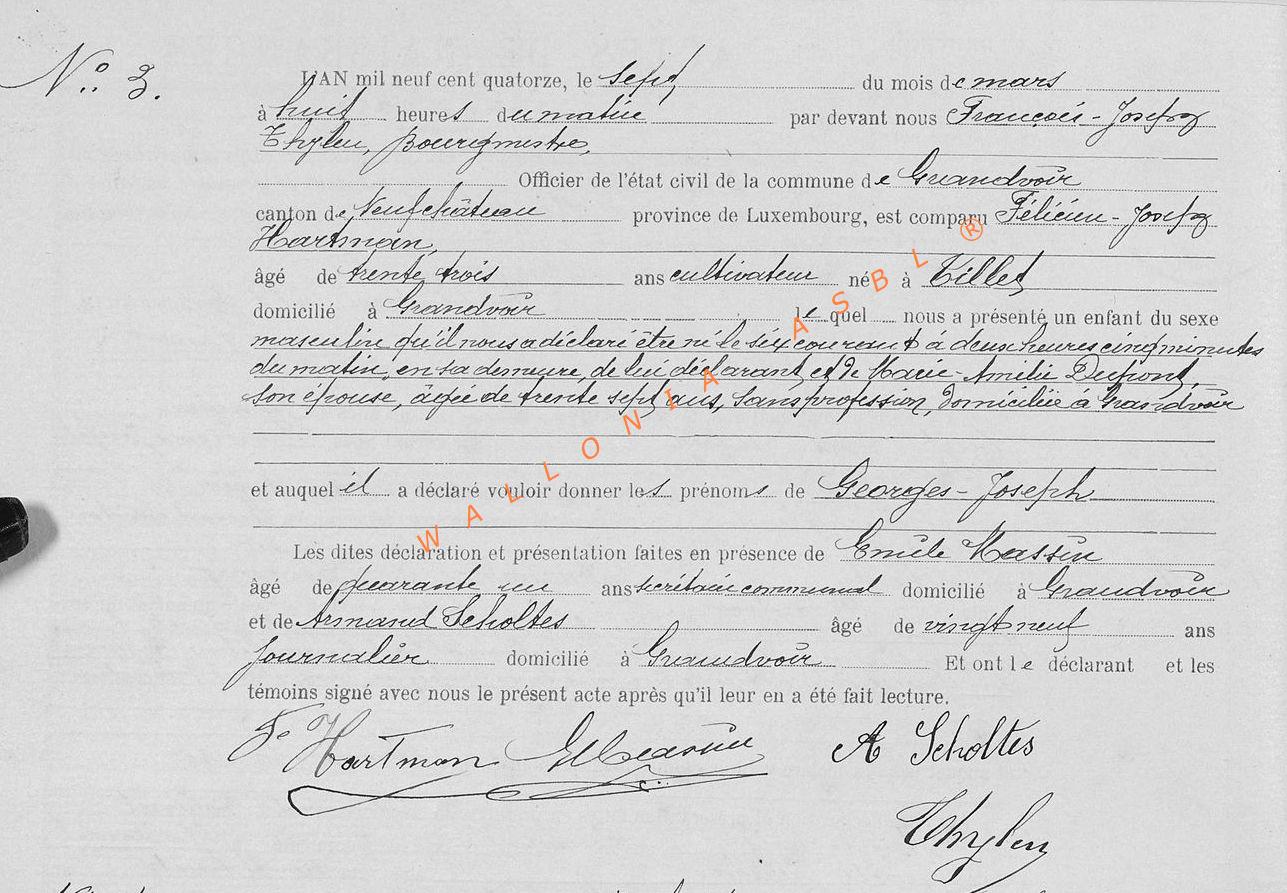 N° 3.
L'AN mil neuf cent quatorze, le sept du mois de mars
à huit heures du matin par devant nous François-Joseph
Thylen, Bourgmestre,
Officier de l'état civil de la commune de Grandvoir
canton de Neufchâteau province de Luxembourg, est comparu Félicien-Joseph
Hartman,
âgé de trente trois ans cultivateur né à Tillet
domicilié à Grandvoir lequel nous a présenté un enfant du sexe
masculin qu'il nous a déclaré être né le six courant à deux heures cinq minutes
du matin, en sa demeure, de lui déclarant et de Marie-Amélie Dupont,
son épouse, âgée de trente sept ans, sans profession, domiciliée à Grandvoir
et auquel il a déclaré vouloir donner les prénoms de Georges-Joseph
Les dites déclaration et présentation faites en présence de Emile Massin
âgé de quarante un ans secrétaire communal domicilié à Grandvoir
et de Armand Scholtes âgé de vingt neuf ans
journalier domicilié à Grandvoir Et ont le déclarant et les
témoins signé avec nous le présent acte après qu'il leur en a été fait lecture.
Hartman EMassin A Scholtes
Thylen
WALLONIA ASBL ®